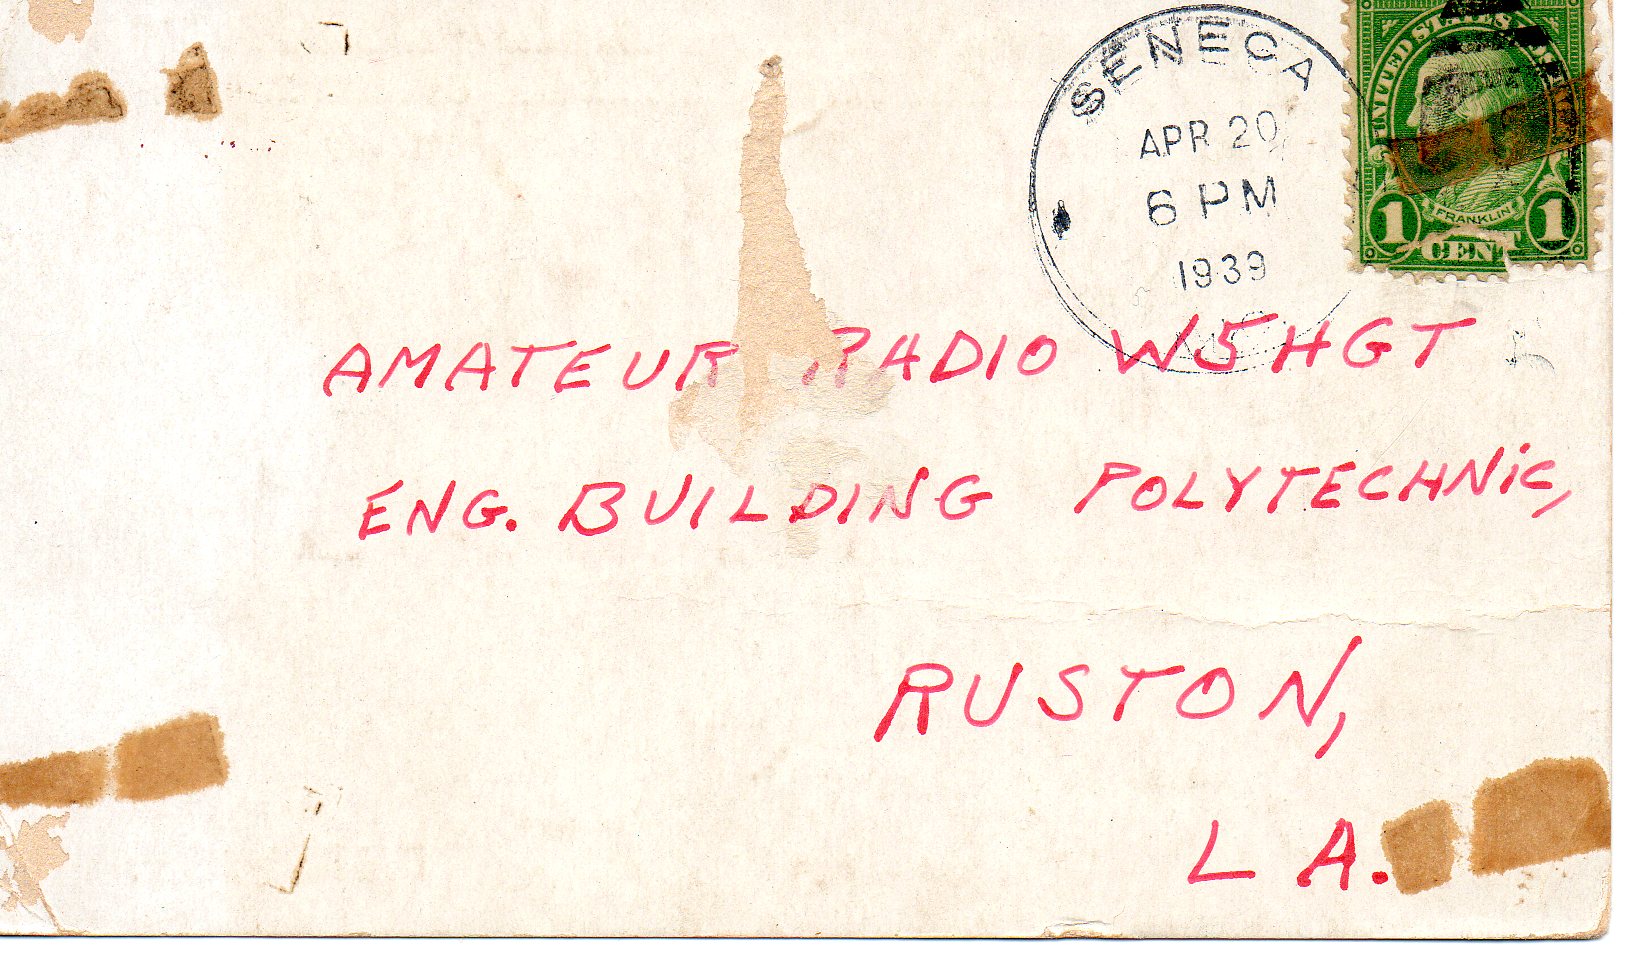 SENECA
APR 20
6 PM
1939
UNITED STATES
FRANKLIN
1 CENT 1
AMATEUR RADIO W5HGT
ENG. BUILDING POLYTECHNIC,
RUSTON,
LA.